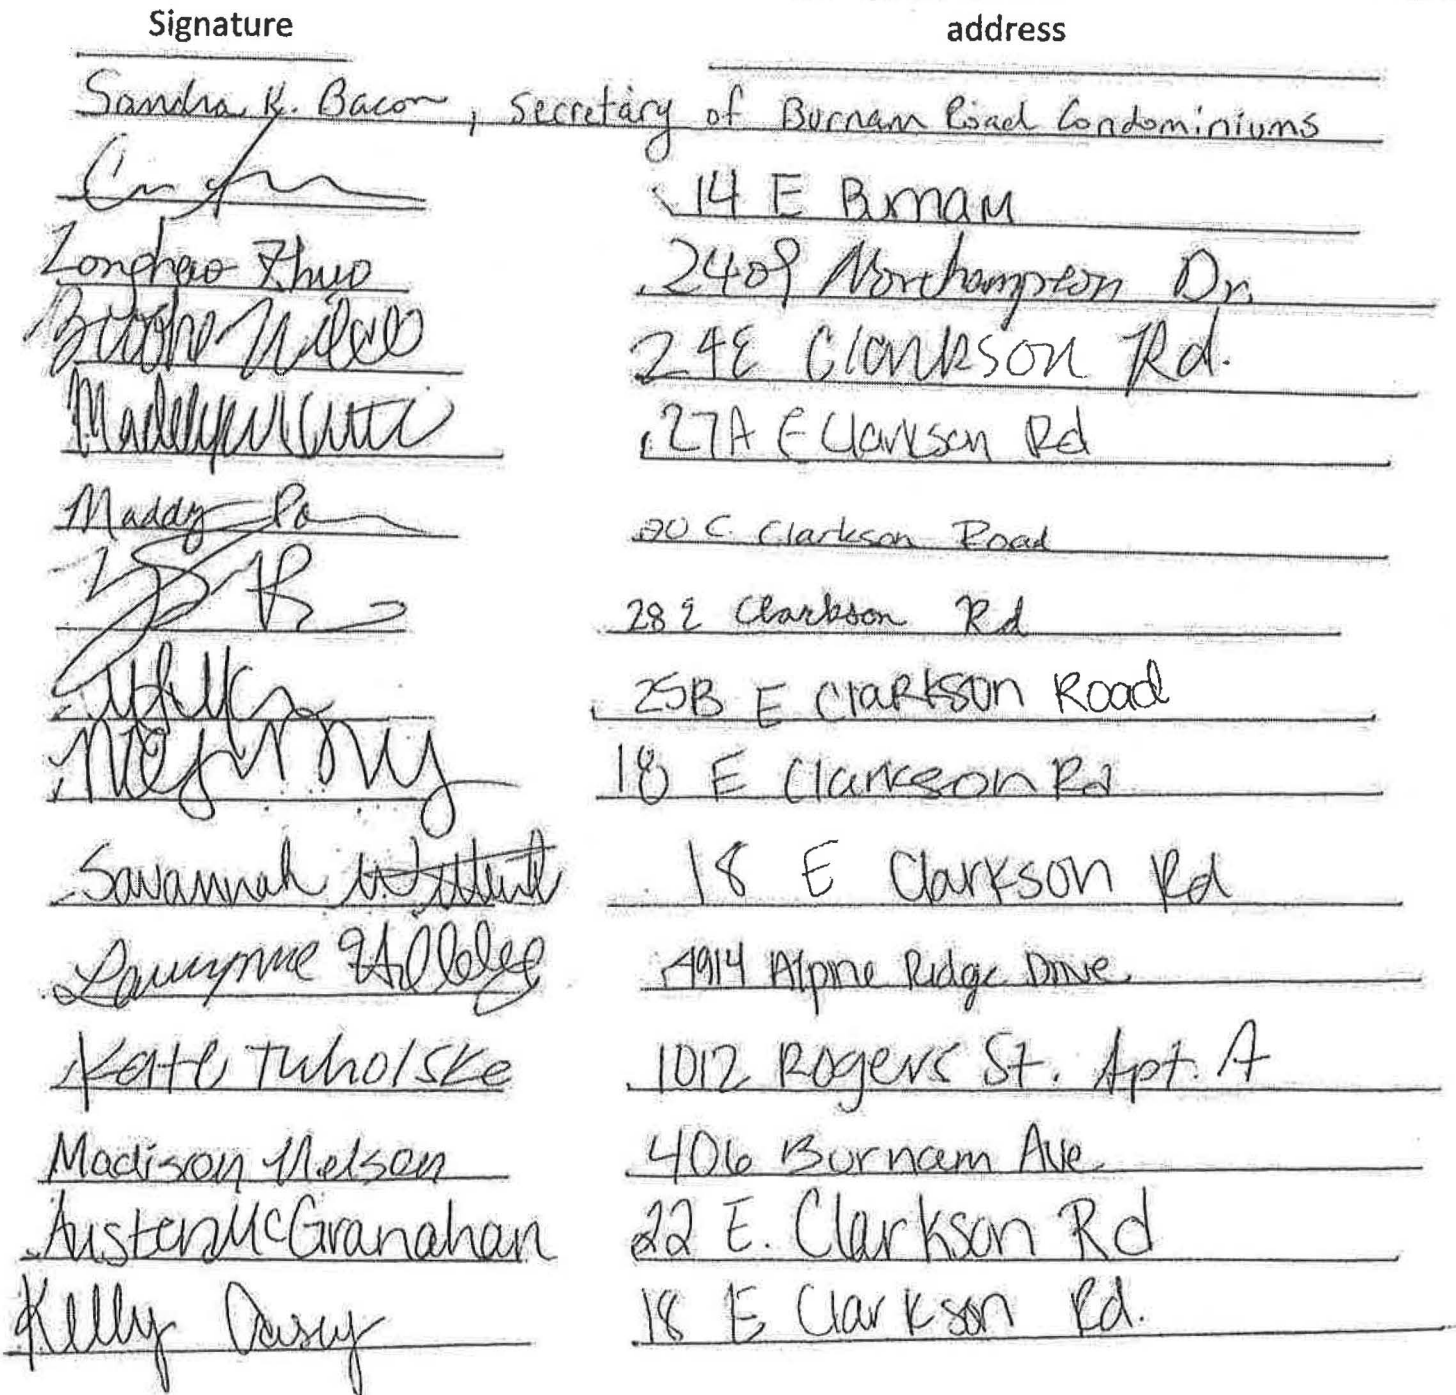 Signature address
Sandra K. Bacon, Secretary of Burnam Road Condominiums
14 E Burnam
Longhao Zhuo 2409 Northampton Dr.
24E Clarkson Rd.
27A E Clarkson Rd
Maddy 20 C. Clarkson Road
28 E Clarkson Rd
25B E Clarkson Road
18 E Clarkson Rd
Savannah 18 E Clarkson Rd
4914 Alpine Ridge Drive
Kate Tuholske 1012 Rogers St. Apt. A
Madison Nelson 406 Burnam Ave
Austen McGranahan 22 E. Clarkson Rd
Kelly Casey 18 E Clarkson Rd.